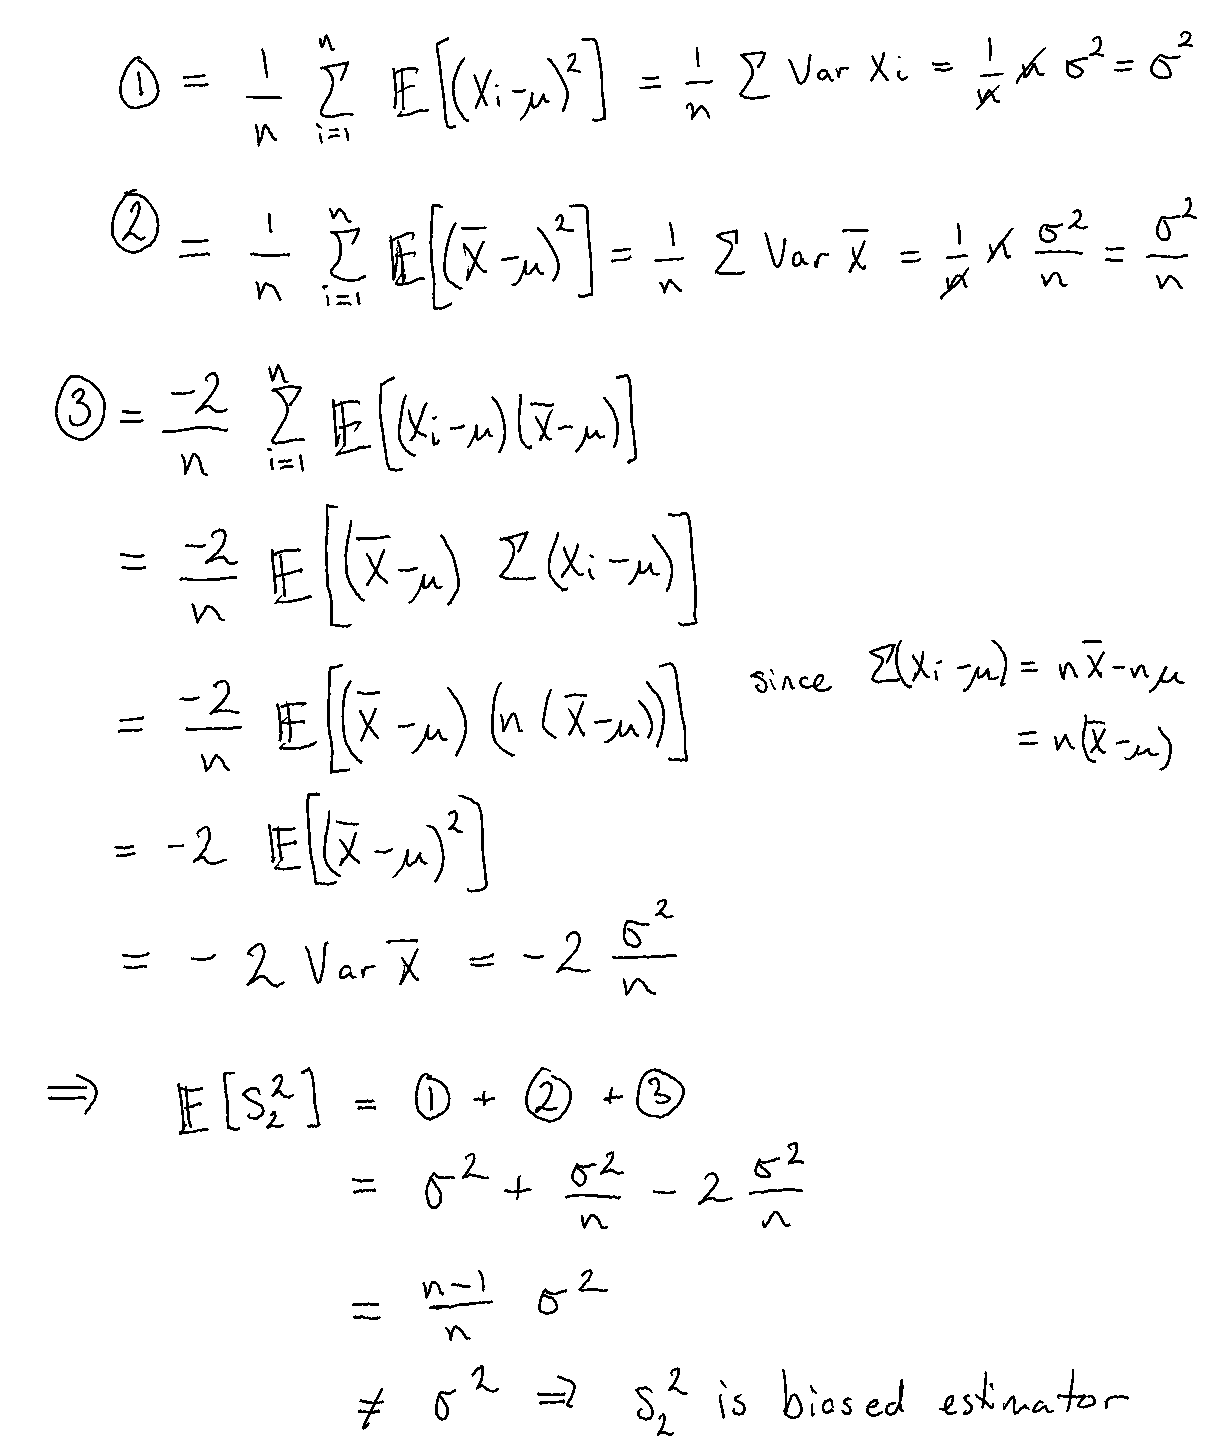 ① = 1/n Σ_{i=1}^{n} 𝔼[(Xi-μ)²] = 1/n Σ Var Xi = 1/n n σ² = σ²
② = 1/n Σ_{i=1}^{n} 𝔼[(X̄-μ)²] = 1/n Σ Var X̄ = 1/n n σ²/n = σ²/n
③ = -2/n Σ_{i=1}^{n} 𝔼[(Xi-μ)(X̄-μ)]
= -2/n 𝔼[(X̄-μ) Σ(Xi-μ)]
= -2/n 𝔼[(X̄-μ)(n(X̄-μ))] since Σ(Xi-μ) = nX̄-nμ
= n(X̄-μ)
= -2 𝔼[(X̄-μ)²]
= -2 Var X̄ = -2 σ²/n
⇒ 𝔼[S₂²] = ① + ② + ③
= σ² + σ²/n - 2 σ²/n
= n-1/n σ²
≠ σ² ⇒ S₂² is biased estimator